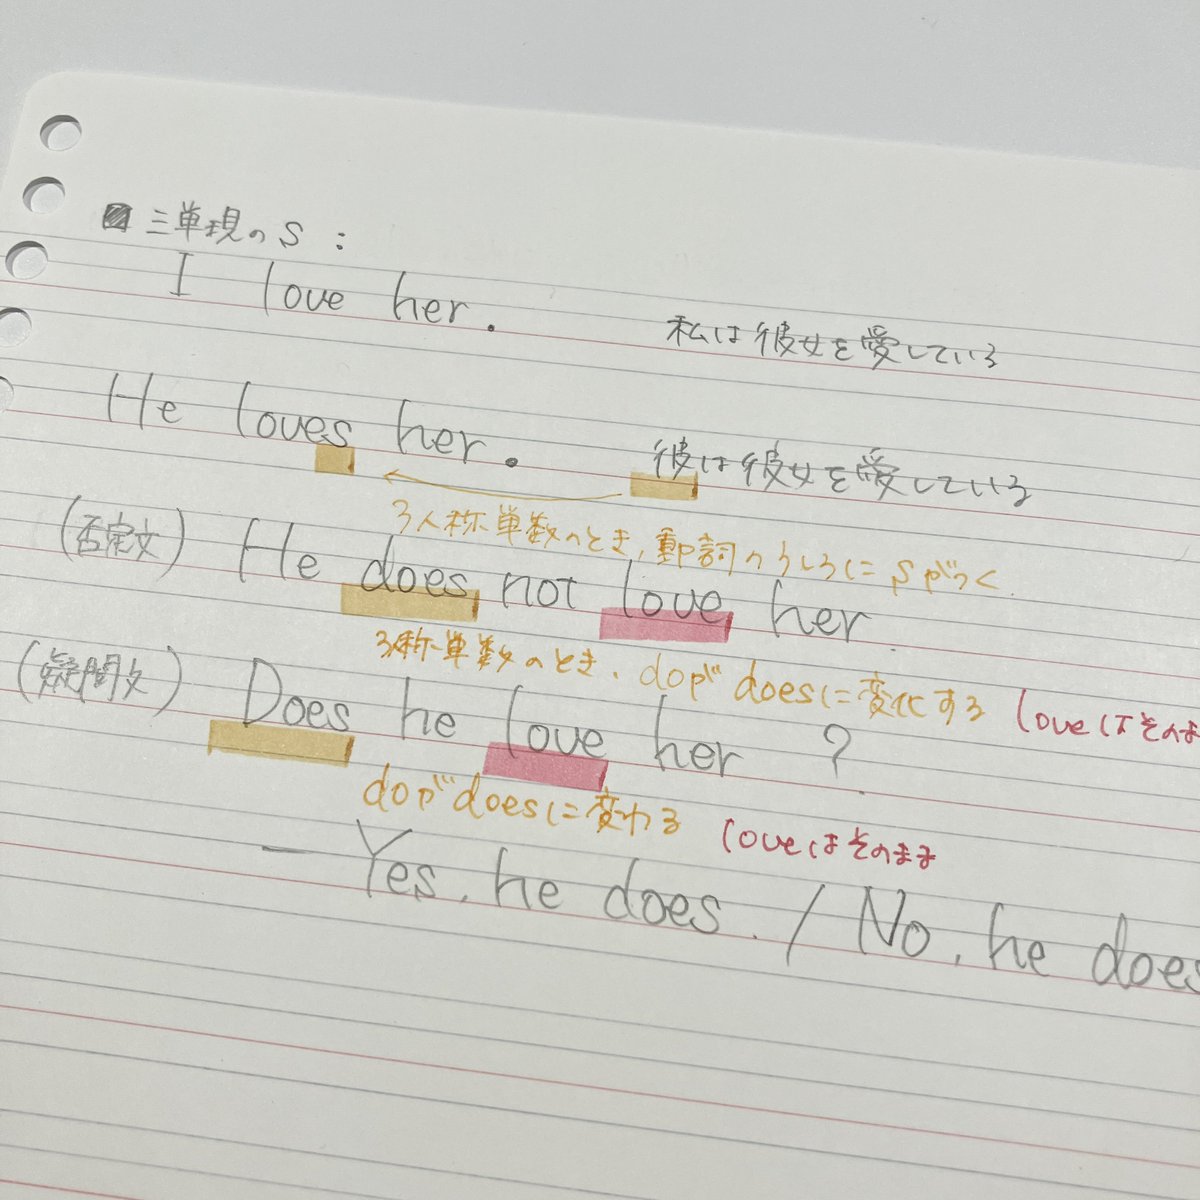 三単現のS:
I love her. 私は彼女を愛している
He loves her. 彼は彼女を愛している
3人称単数のとき、動詞のうしろにsがつく
(否定文) He does not love her.
3人称単数のとき、doがdoesに変化する loveはそのま
(疑問文) Does he love her ?
doがdoesに変わる loveはそのまま
— Yes, he does. / No, he does